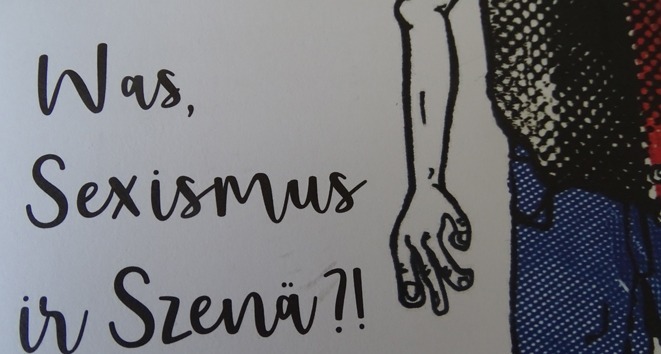 Was,
Sexismus
ir Szenä?!